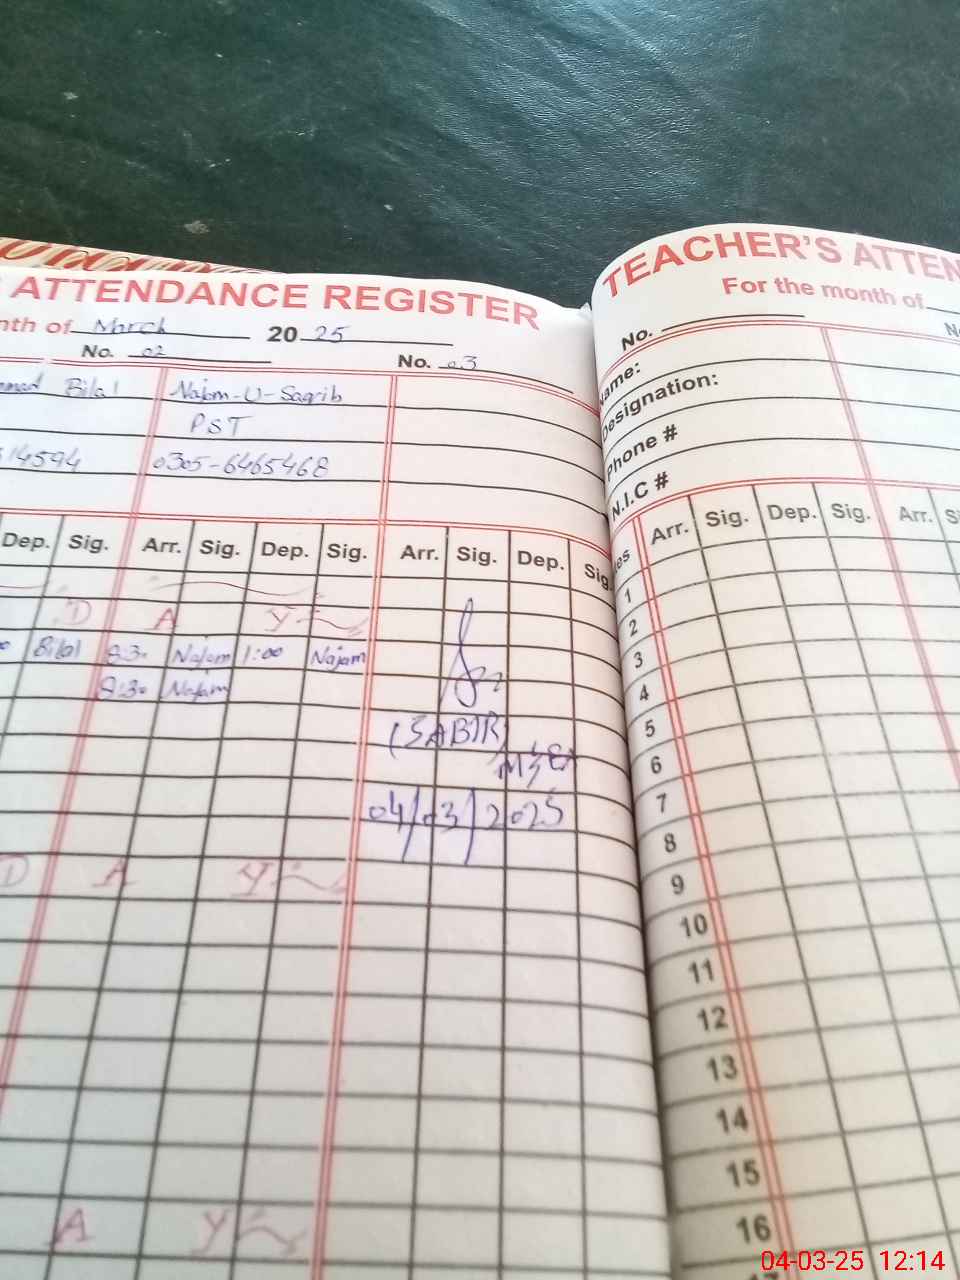 ATTENDANCE REGISTER
nth of March 20 25
No. 02 No. 03
Bilal Najam-U-Saqib
PST
14594 0305-6465468
Dep. Sig. Arr. Sig. Dep. Sig. Arr. Sig. Dep. Sig.
D A Y
Bilal 8:30 Najam 1:00 Najam
8:30 Najam
(SABIR)
04/03/2025
D A Y
A Y
TEACHER'S ATTEN
For the month of
No.
Name:
Designation:
Phone #
N.I.C #
es Arr. Sig. Dep. Sig. Arr. S
1
2
3
4
5
6
7
8
9
10
11
12
13
14
15
16
04-03-25 12:14